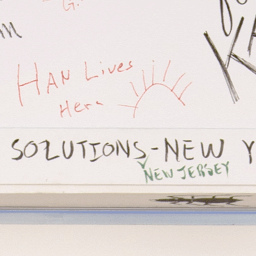 G.
HAN Lives
Here
SOLUTIONS-NEW Y
NEW JERSEY